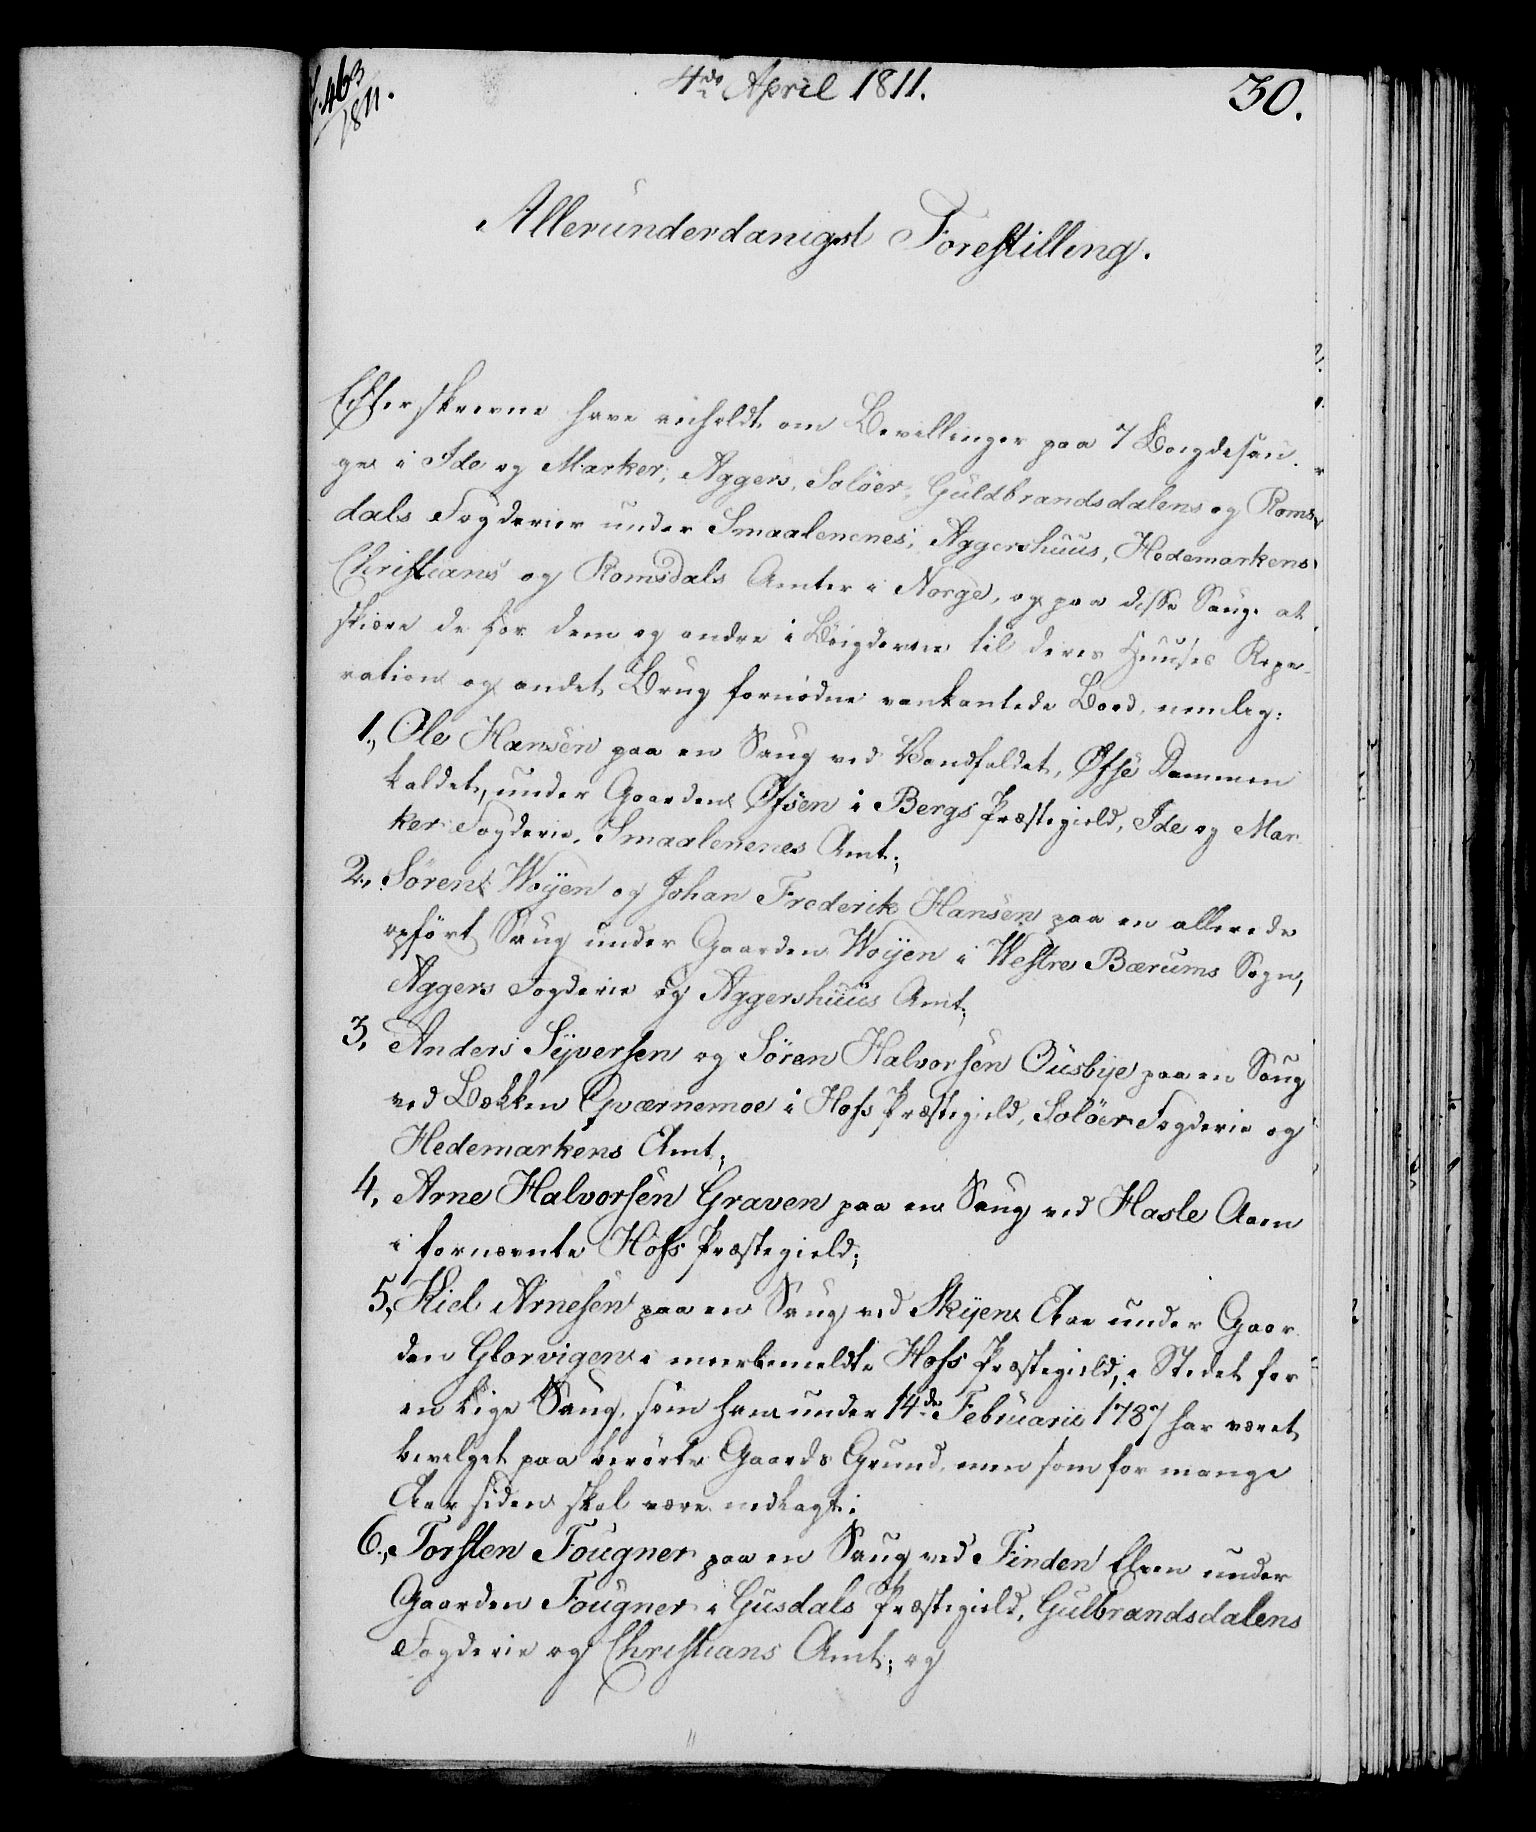 463
1811.
4de April 1811.
30.
Allerunderdanigst Forestilling.
Efterskrevne have anholdt om Bevillinger paa 7 Boigdesau-
ge i Ide og Marker, Aggers, Soløer, Guldbrandsdalens og Roms-
dals Fogderier under Smaalenenes, Aggershuus, Hedemarkens
Christians og Romsdals Amter i Norge, og paa disse Sauge at
skiære de for dem og andre i Böigderne til deres Huuses Repa-
ration og andet Brug fornødne vankantede Bord, nemlig:
1., Ole Hansen paa en Saug ved Vandfaldet, Øfse Dammen
kaldet, under Gaarden Øfsen i Bergs Præstegield, Ide og Mar-
ker Fogderie, Smaalenenes Amt;
2., Sören Woyen og Johan Frederik Hansen paa en allerede
opført Saug under Gaarden Woyen i Westre Bærums Sogn,
Aggers Fogderie og Aggershuus Amt;
3, Anders Syversen og Sören Halvorsen Ousbye paa en Saug
ved Bækken Qværnemoe i Hofs Præstegield, Soløer Fogderie og
Hedemarkens Amt;
4, Arne Halvorsen Graven paa en Saug ved Hasle Aaen
i fornævnte Hofs Præstegield;
5, Kiel Arnesen paa en Saug ved Skyen Aae under Gaar-
den Glorvigen i meerbemeldte Hofs Præstegield, i Stedet for
en lige Saug, som ham under 14de Februarii 1787 har været
bevilget paa berørte Gaards Grund, men som for mange
Aar siden skal være nedlagt;
6., Torsten Fougner paa en Saug ved Finden Elven under
Gaarden Fougner i Gusdals Præstegield, Gulbrandsdalens
Fogderie og Christians Amt; og